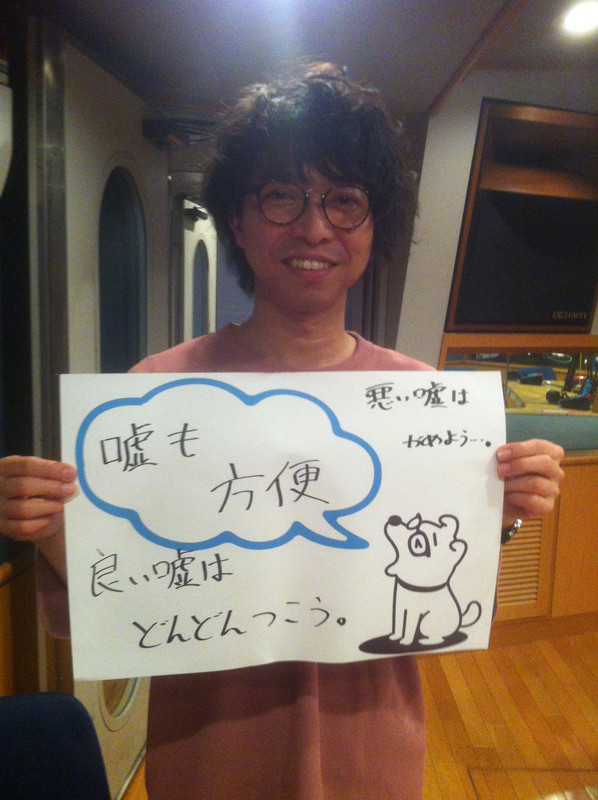 嘘も
方便
良い嘘は
どんどんつこう。
悪い嘘は
やめよう…。
A
EXCLUSIVE